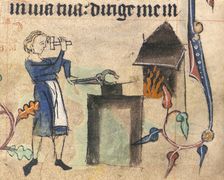 in via tua: dirige me in